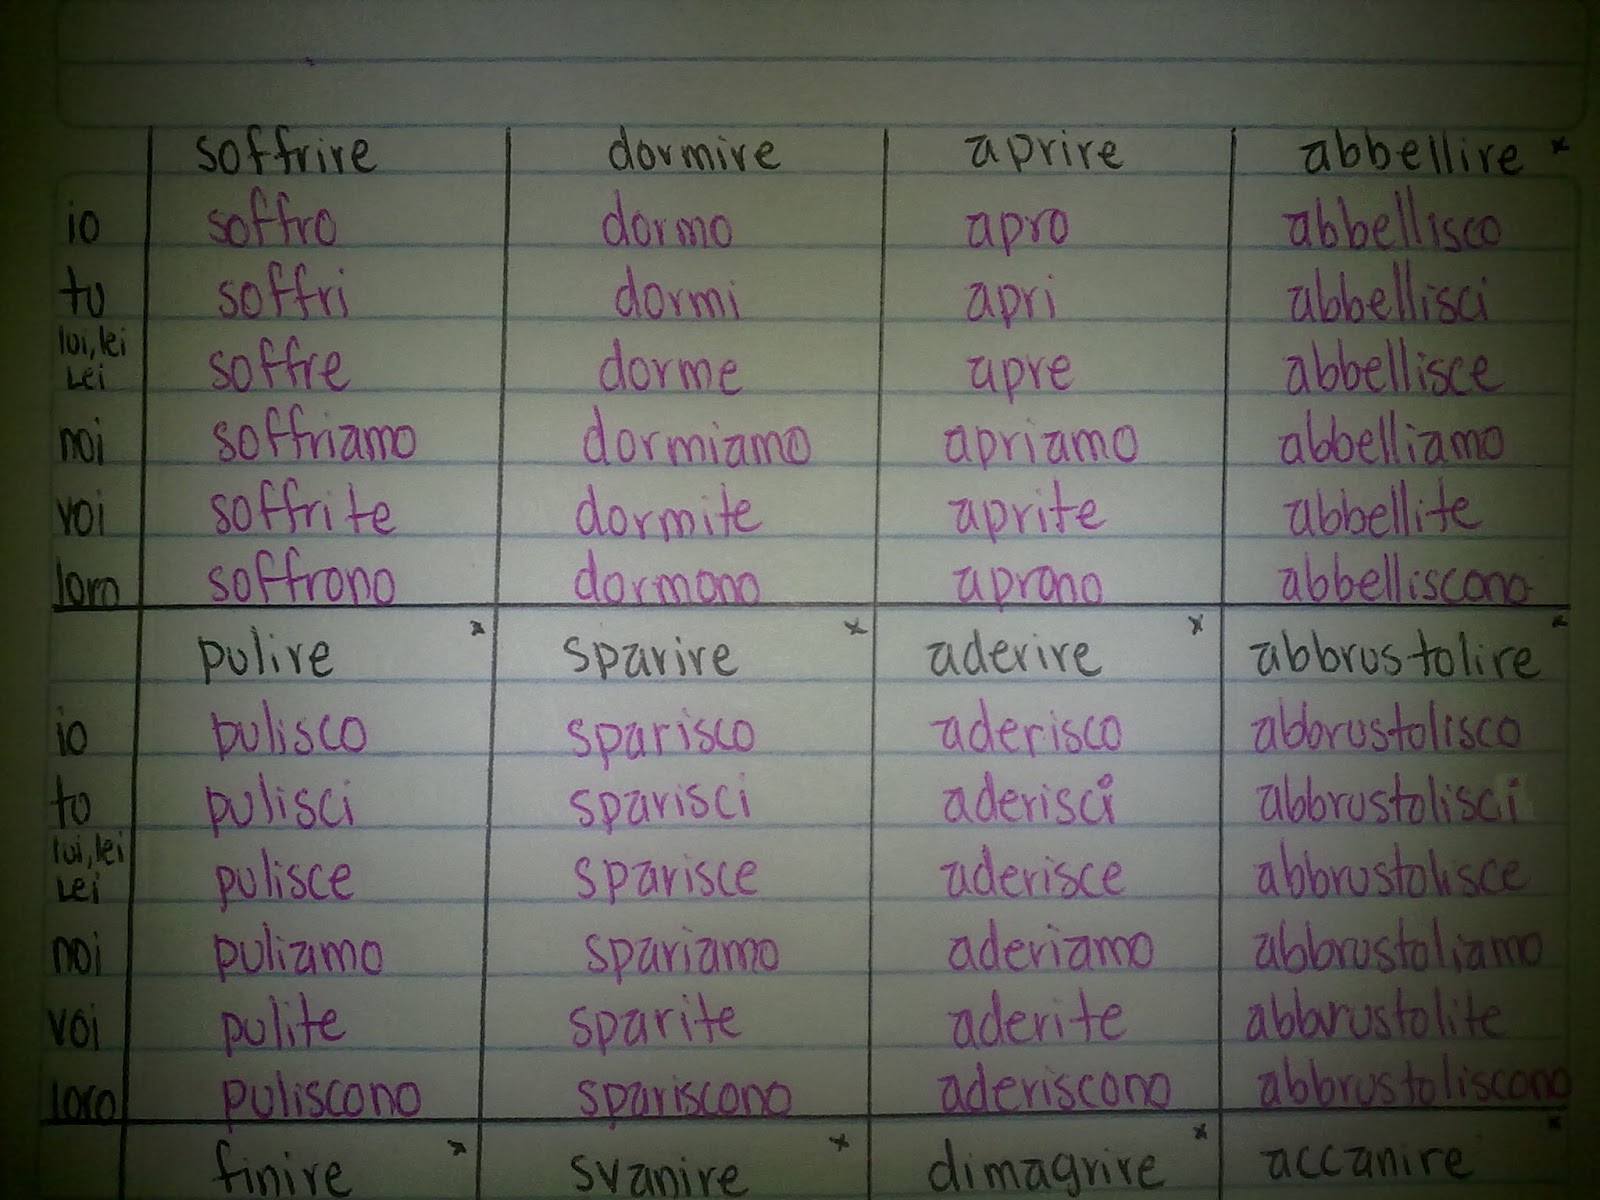 soffrire dormire aprire abbellire *
io soffro dormo apro abbellisco
tu soffri dormi apri abbellisci
lui, lei
Lei soffre dorme apre abbellisce
noi soffriamo dormiamo apriamo abbelliamo
voi soffrite dormite aprite abbellite
loro soffrono dormono aprono abbelliscono
pulire * sparire * aderire * abbrustolire *
io pulisco sparisco aderisco abbrustolisco
tu pulisci sparisci aderisci abbrustolisci
lui, lei
Lei pulisce sparisce aderisce abbrustolisce
noi puliamo spariamo aderiamo abbrustoliamo
voi pulite sparite aderite abbrustolite
loro puliscono spariscono aderiscono abbrustoliscono
finire * svanire * dimagrire * accanire *